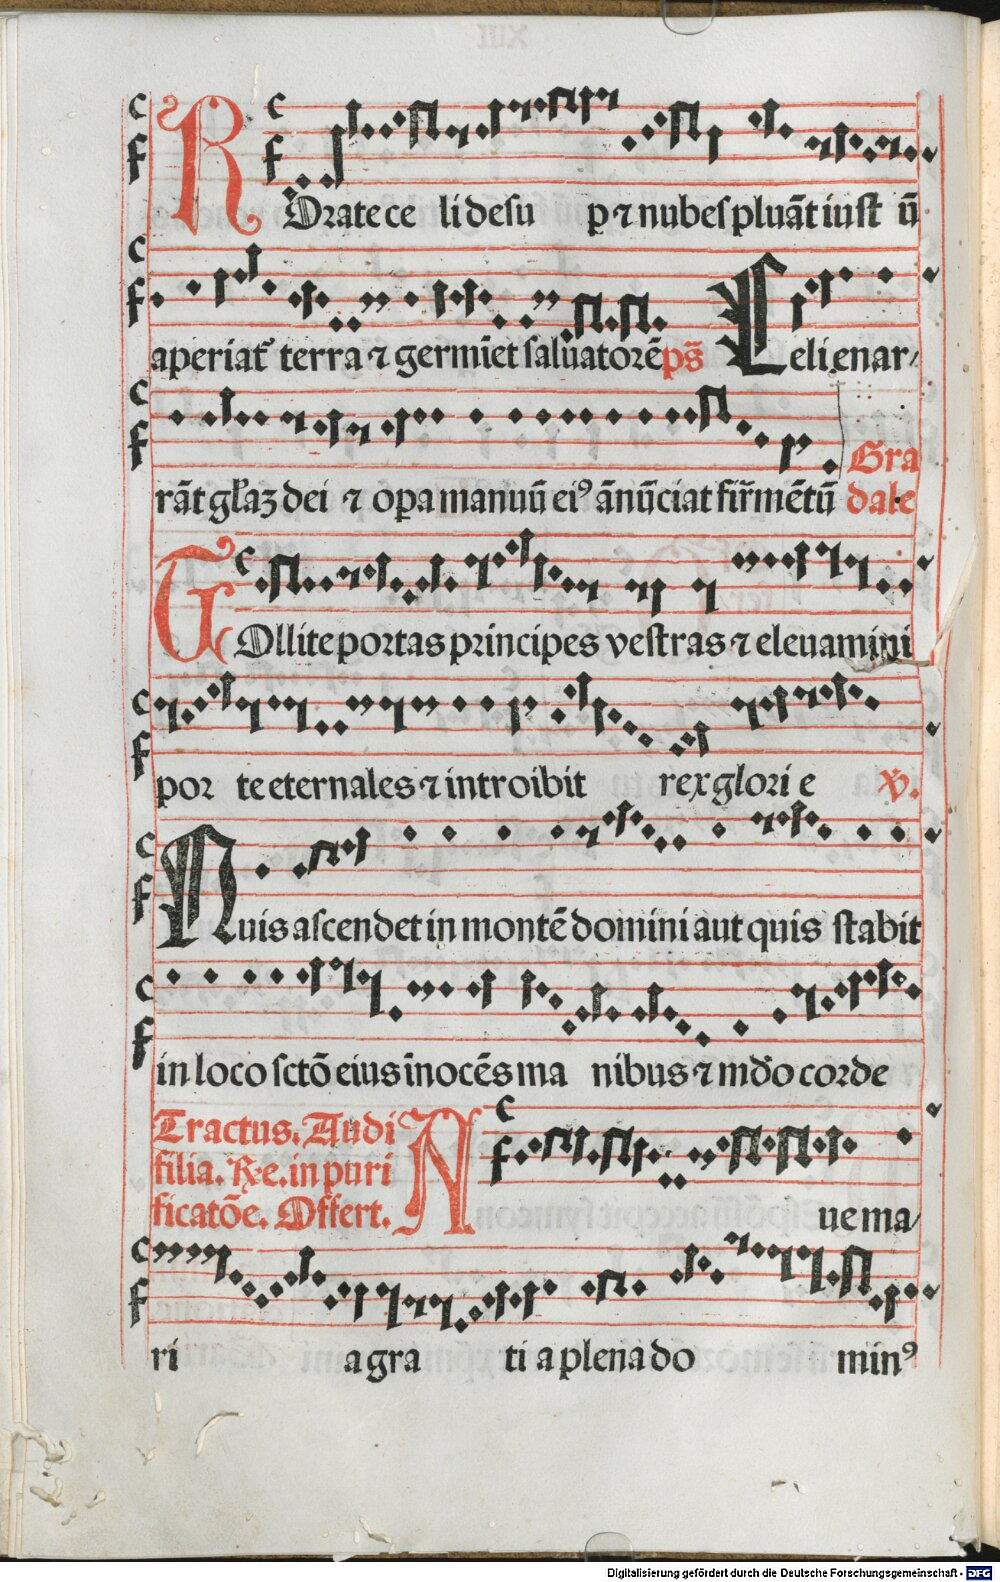 XIII
RORate ce li desu p ⁊ nubes pluāt iust ū
aperiat᷑ terra ⁊ germīet saluatorē ps̄ Celi enar-
rāt gl̄aʒ dei ⁊ opa manuū eiꝰ ānūciat fir̄mētū Gra
dale
TOllite portas principes vestras ⁊ eleuamini
por te eternales ⁊ introibit rex glori e ℣.
Quis ascendet in montē domini aut quis stabit
in loco sctō eius īnocēs ma nibus ⁊ mūdo corde
Tractus. Audi
filia. Re. in puri
ficatōe. Offert. Aue ma-
ri a gra ti a plena do minꝰ
Digitalisierung gefördert durch die Deutsche Forschungsgemeinschaft - DFG